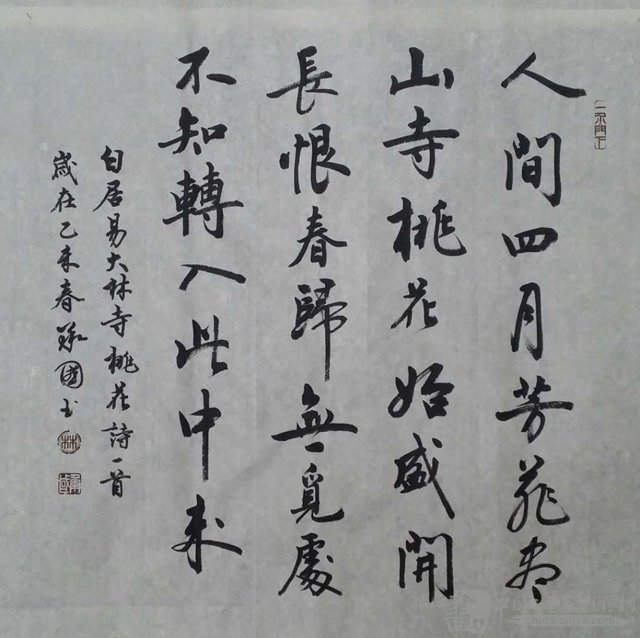 人間四月芳菲盡
山寺桃花始盛開
長恨春歸無覓處
不知轉入此中来
白居易大林寺桃花詩一首
歲在乙未春承國书